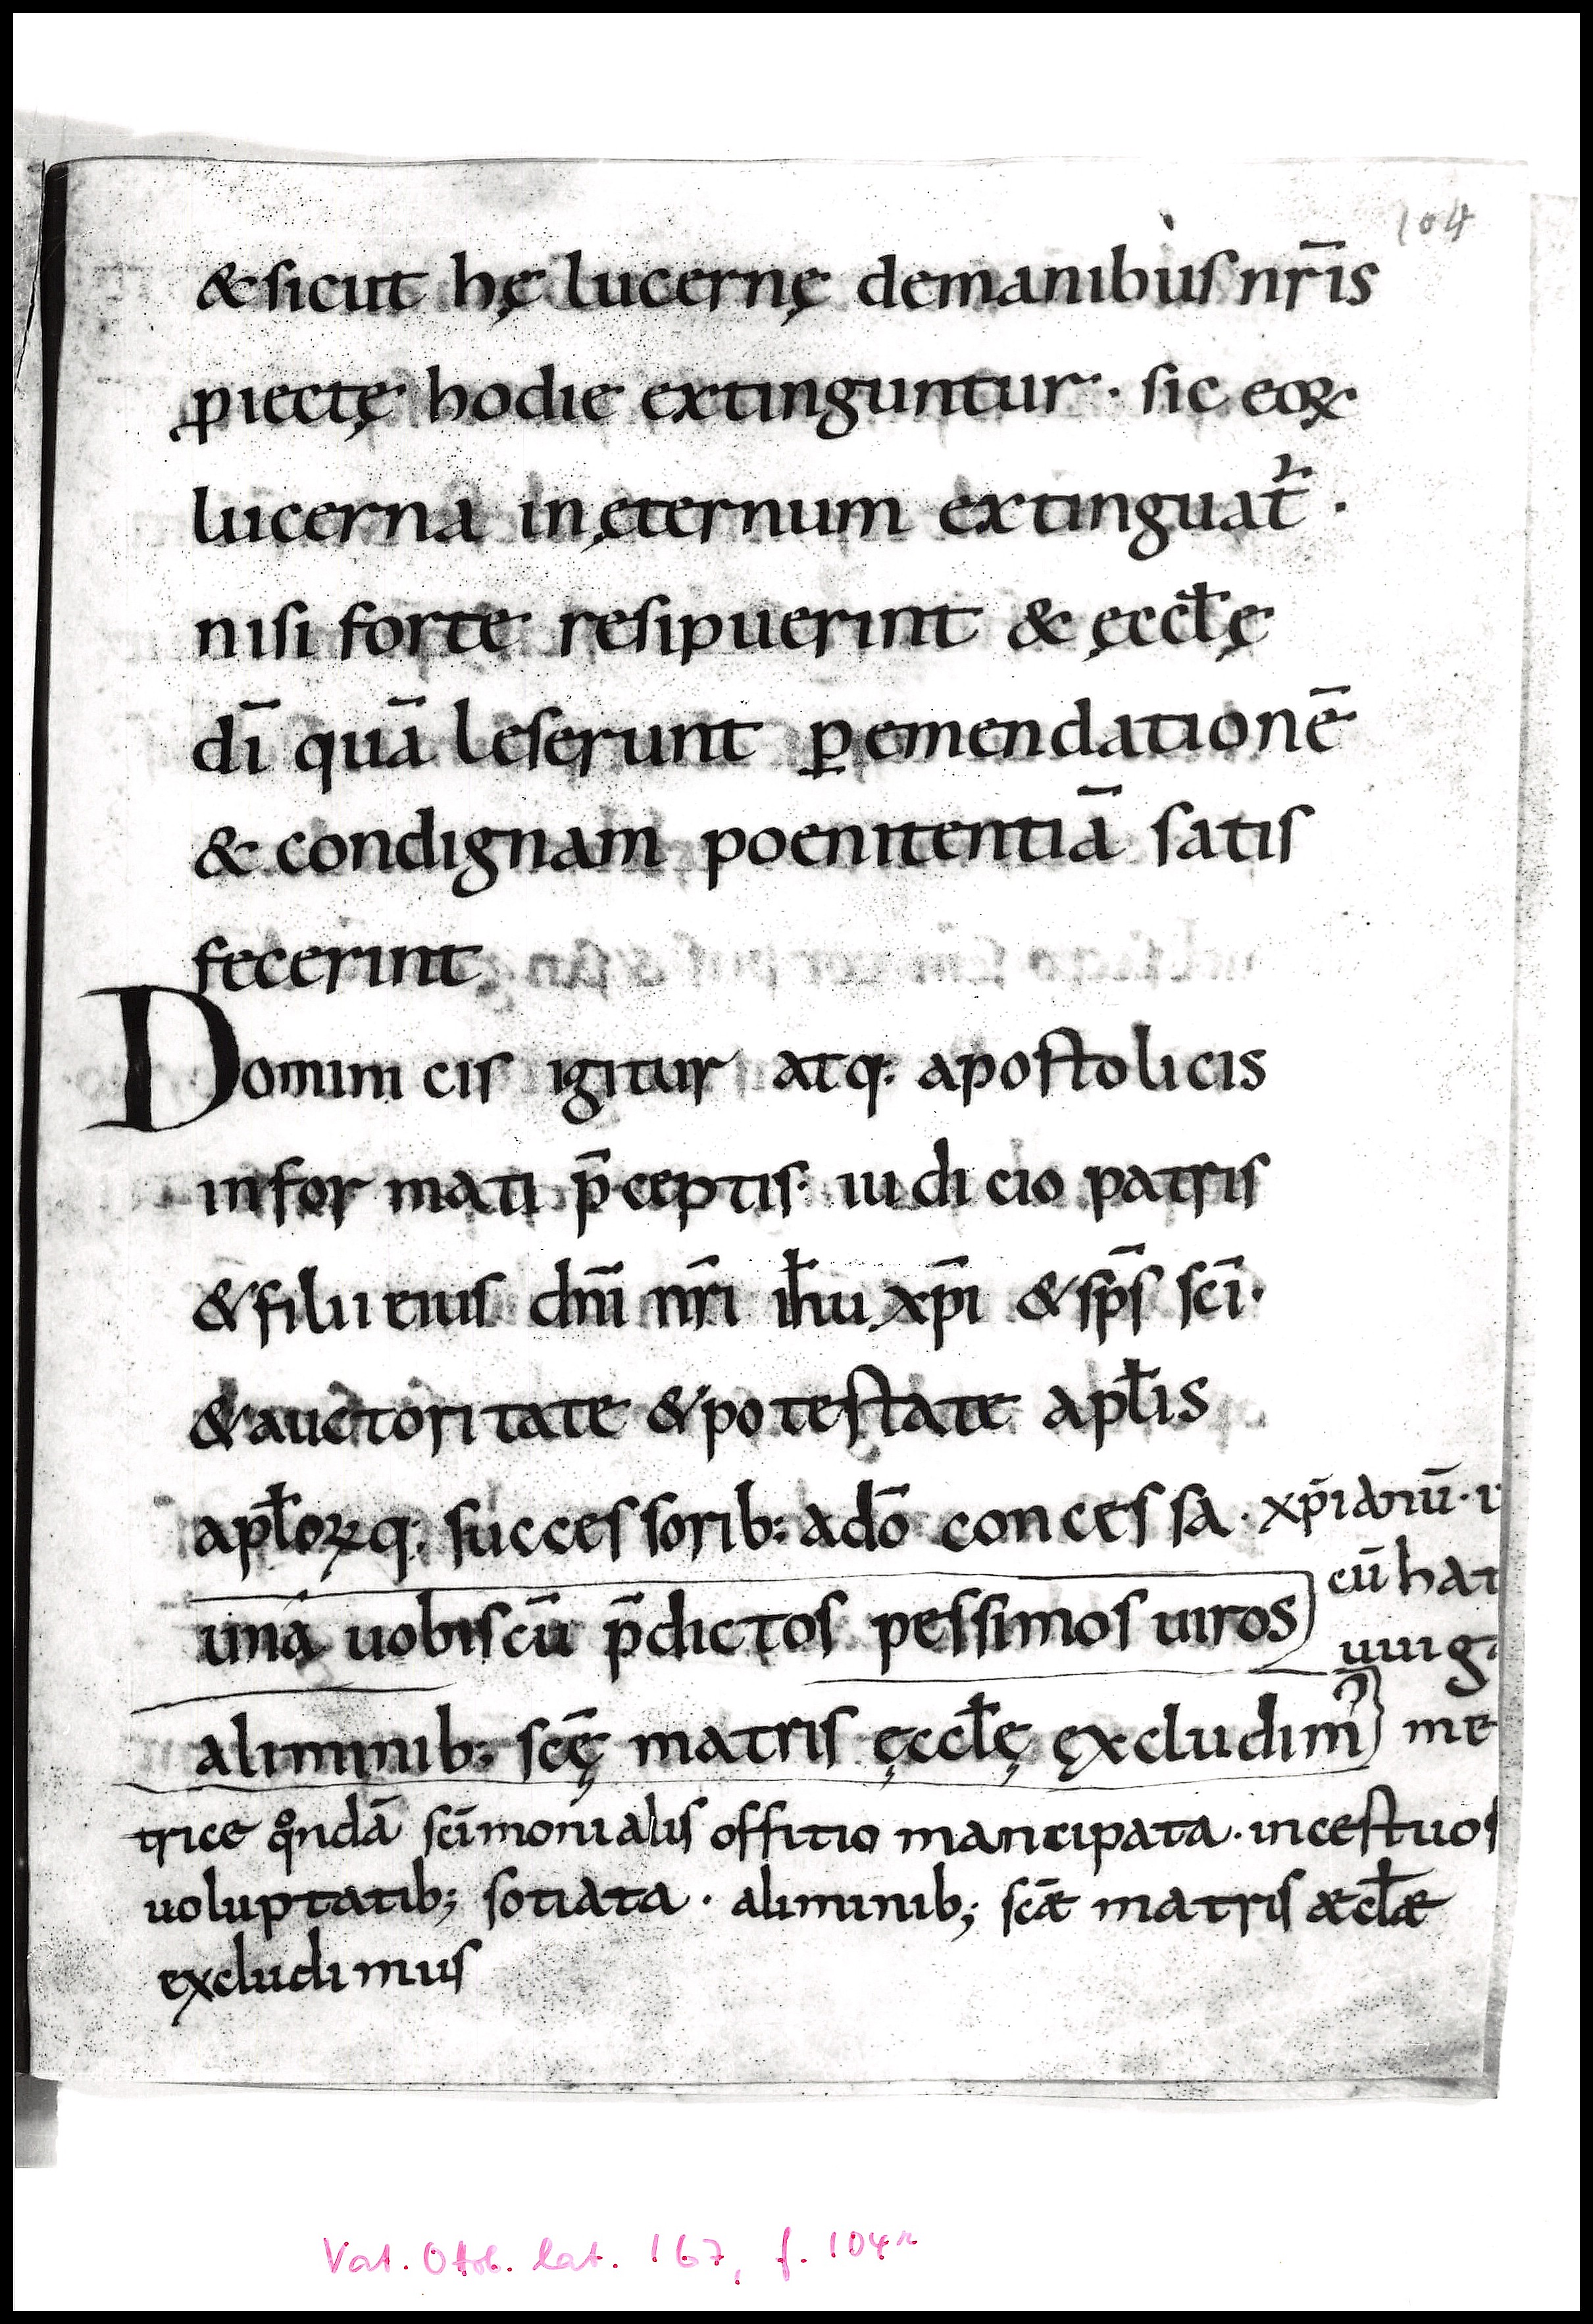 104
& sicut hę lucernę de manibus nr̄is
ꝓiectę hodie extinguntur · sic eoꝝ
lucerna in ęternum extinguat᷑ ·
nisi forte resipuerint & ęccłę
dī quā leserunt ꝑ emendationē
& condignam poenitentiā satis
fecerint
Dominicis igitur atq· apostolicis
informati p̄ceptis · iudicio patris
& filii eius dn̄i nr̄i ih̄u xp̄i & sp̄s sc̄i ·
& auctoritate & potestate apłis
apłoꝝq: successorib: a dō concessa · xp̄ianū · i
una uobiscū p̄dictos pessimos uiros
cū hat
uuig
aliminib: sc̄ę matris ęccłę excludim᷒ me
trice qͦndā sc̄imonialis offitio mancipata · incestuos
uoluptatib; sotiata · aliminib; sc̄æ matris æcłæ
excludimus
Vat. Ottob. lat. 167, f. 104r